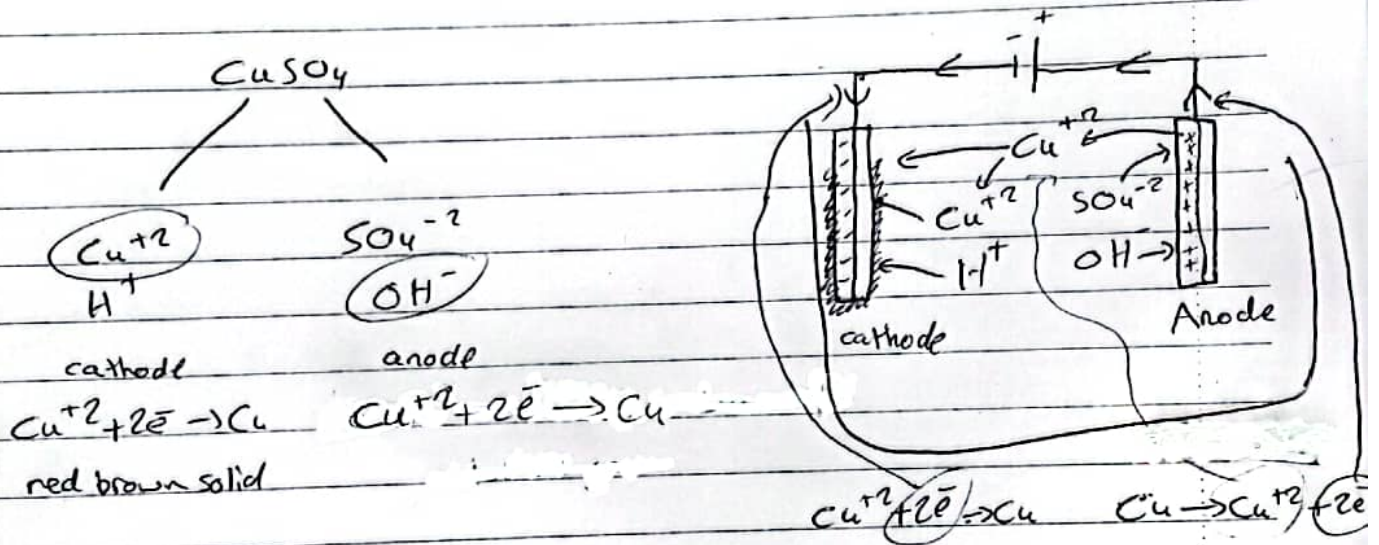 CuSO4
Cu+2
H+
SO4-2
OH-
cathode
anode
Cu+2+2ē→Cu
Cu+2+2ē→Cu
red brown solid
- +
Cu+2
Cu+2
H+
SO4-2
OH-
cathode
Anode
Cu+2+2ē→Cu
Cu→Cu+2+2ē